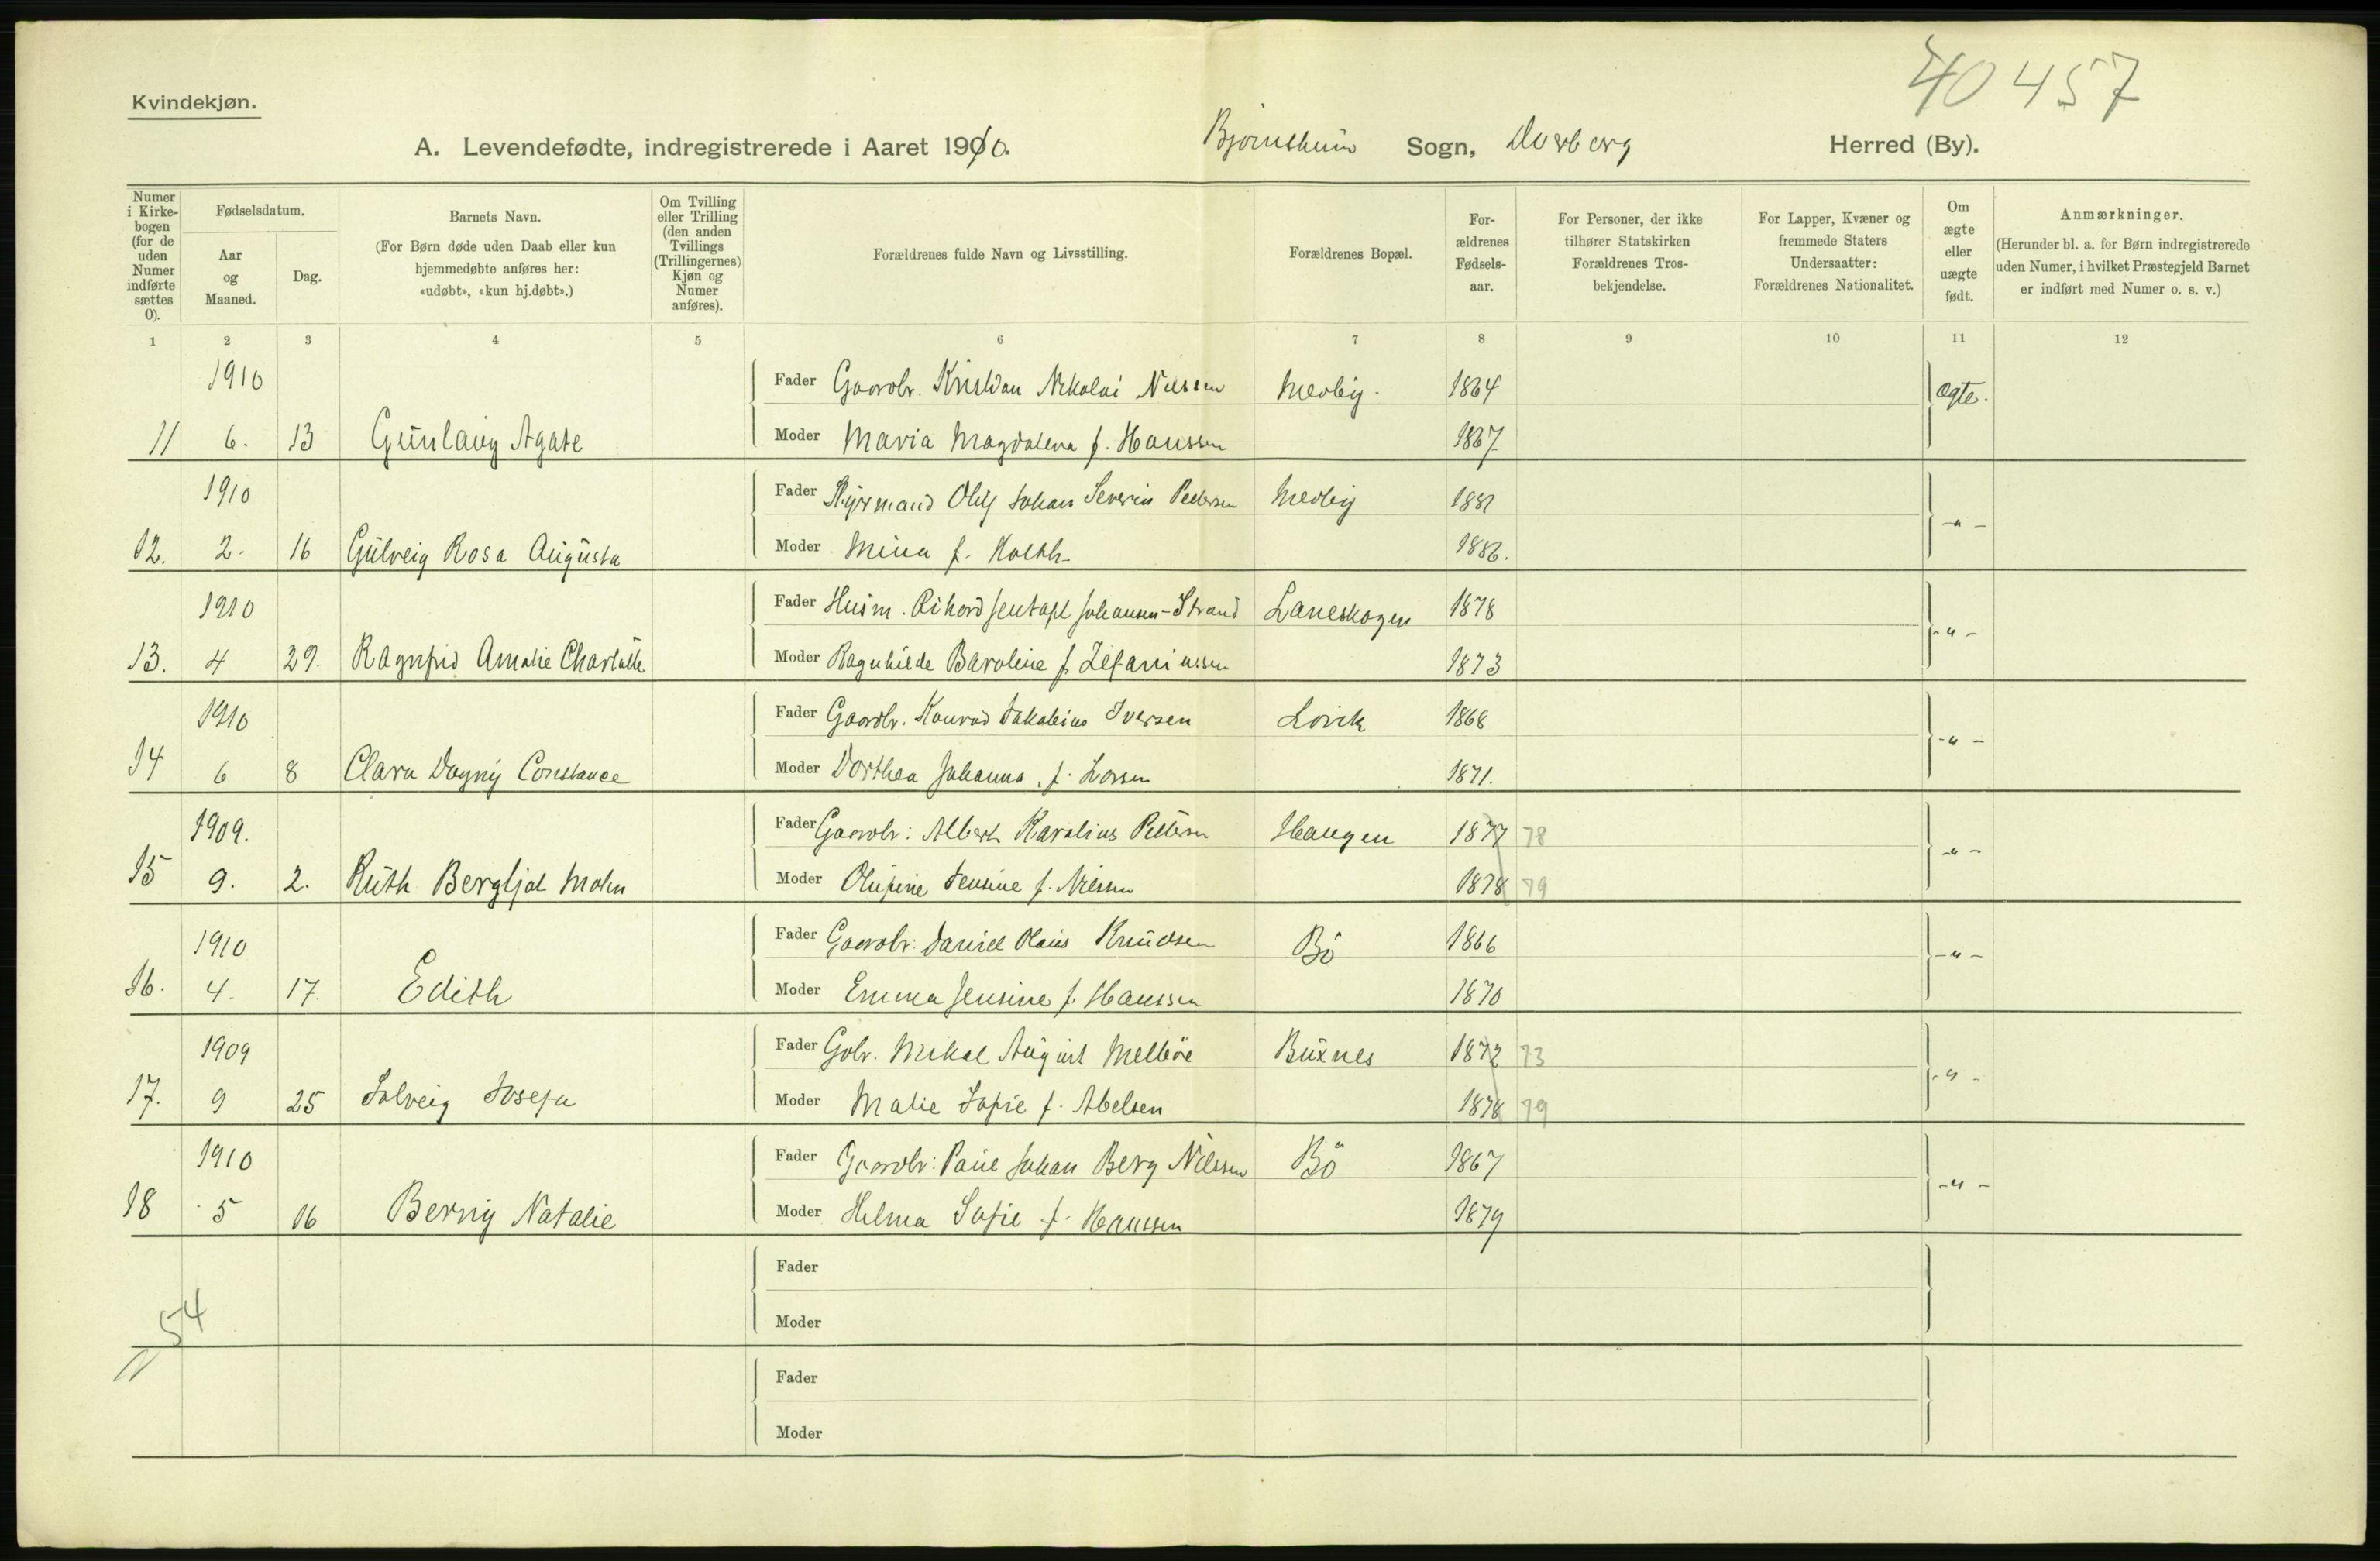 40457
Kvindekjøn.
A. Levendefødte, indregistrerede i Aaret 1910. Bjørnskinn Sogn, Dverberg Herred (By).
Numer i Kirkebogen (for de uden Numer indførte sættes 0).
Fødselsdatum.
Aar og Maaned.
Dag.
Barnets Navn.
(For Børn døde uden Daab eller kun hjemmedøbte anføres her: «udøbt», «kun hj.døbt».)
Om Tvilling eller Trilling (den anden Tvillings (Trillingernes) Kjøn og Numer anføres).
Forældrenes fulde Navn og Livsstilling.
Forældrenes Bopæl.
Forældrenes Fødselsaar.
For Personer, der ikke tilhører Statskirken Forældrenes Trosbekjendelse.
For Lapper, Kvæner og fremmede Staters Undersaatter: Forældrenes Nationalitet.
Om ægte eller uægte født.
Anmærkninger.
(Herunder bl. a. for Børn indregistrerede uden Numer, i hvilket Præstegjeld Barnet er indført med Numer o. s. v.)
1 2 3 4 5 6 7 8 9 10 11 12
1910 Fader Gaardbr. Kristian Nikolai Nilssen Medby. 1864 Ægte.
11 6. 13 Gunlaug Agate Moder Maria Magdalena f. Hanssen 1867
1910 Fader Styrmand Oluf Johan Severin Pedersen Medby 1881 -"-
12. 2. 16 Gulveig Rosa Augusta Moder Mina f. 1886.
1910 Fader Husm. Rikard Jentoft Johansen-Strand Laneskogen 1878 -"-
13. 4 29. Ragnfrid Amalie Charlotte Moder Ragnhilde Baroline f. Zefaniassen 1873
1910 Fader Gaardbr. Konrad Jakobius Iversen Lovik 1868 -"-
14 6 8 Clara Dagny Constance Moder Dorthea Johanna f. Larsen 1871.
1909. Fader Gaardbr: Albert Karolius Pettersen Haugen 1877 78 -"-
15 9. 2. Ruth Bergljot Mohn Moder Olufine Jensine f. Nilssen 1878 79
1910 Fader Gaardbr: Daniel Olaus Knudsen Bö 1866 -"-
16. 4. 17. Edith Moder Emma Jensine f. Hanssen 1870
1909 Fader Gbr. Mikal August Melbøe Buxnes 1872 73 -"-
17. 9 25 Solveig Josefa Moder Malie Sofie f. Abelsen 1878 79
1910 Fader Gaardbr: Paul Johan Berg Nilssen Bö 1867 -"-
18 5 16 Berny Natalie Moder Helma Sofie f. Hanssen 1879
Fader
54
Moder
11
Fader
Moder